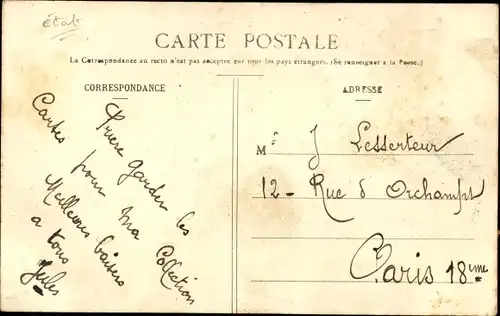 état
CARTE POSTALE
La Correspondance au recto n'est pas acceptée par tous les pays étrangers. (Se renseigner à la Poste.)
CORRESPONDANCE
Priere garder les
Cartes pour ma Collection
Meilleurs baisers
a tous
Jules
ADRESSE
M J Lesserteur
12 - Rue d'Orchampt
Paris 18eme